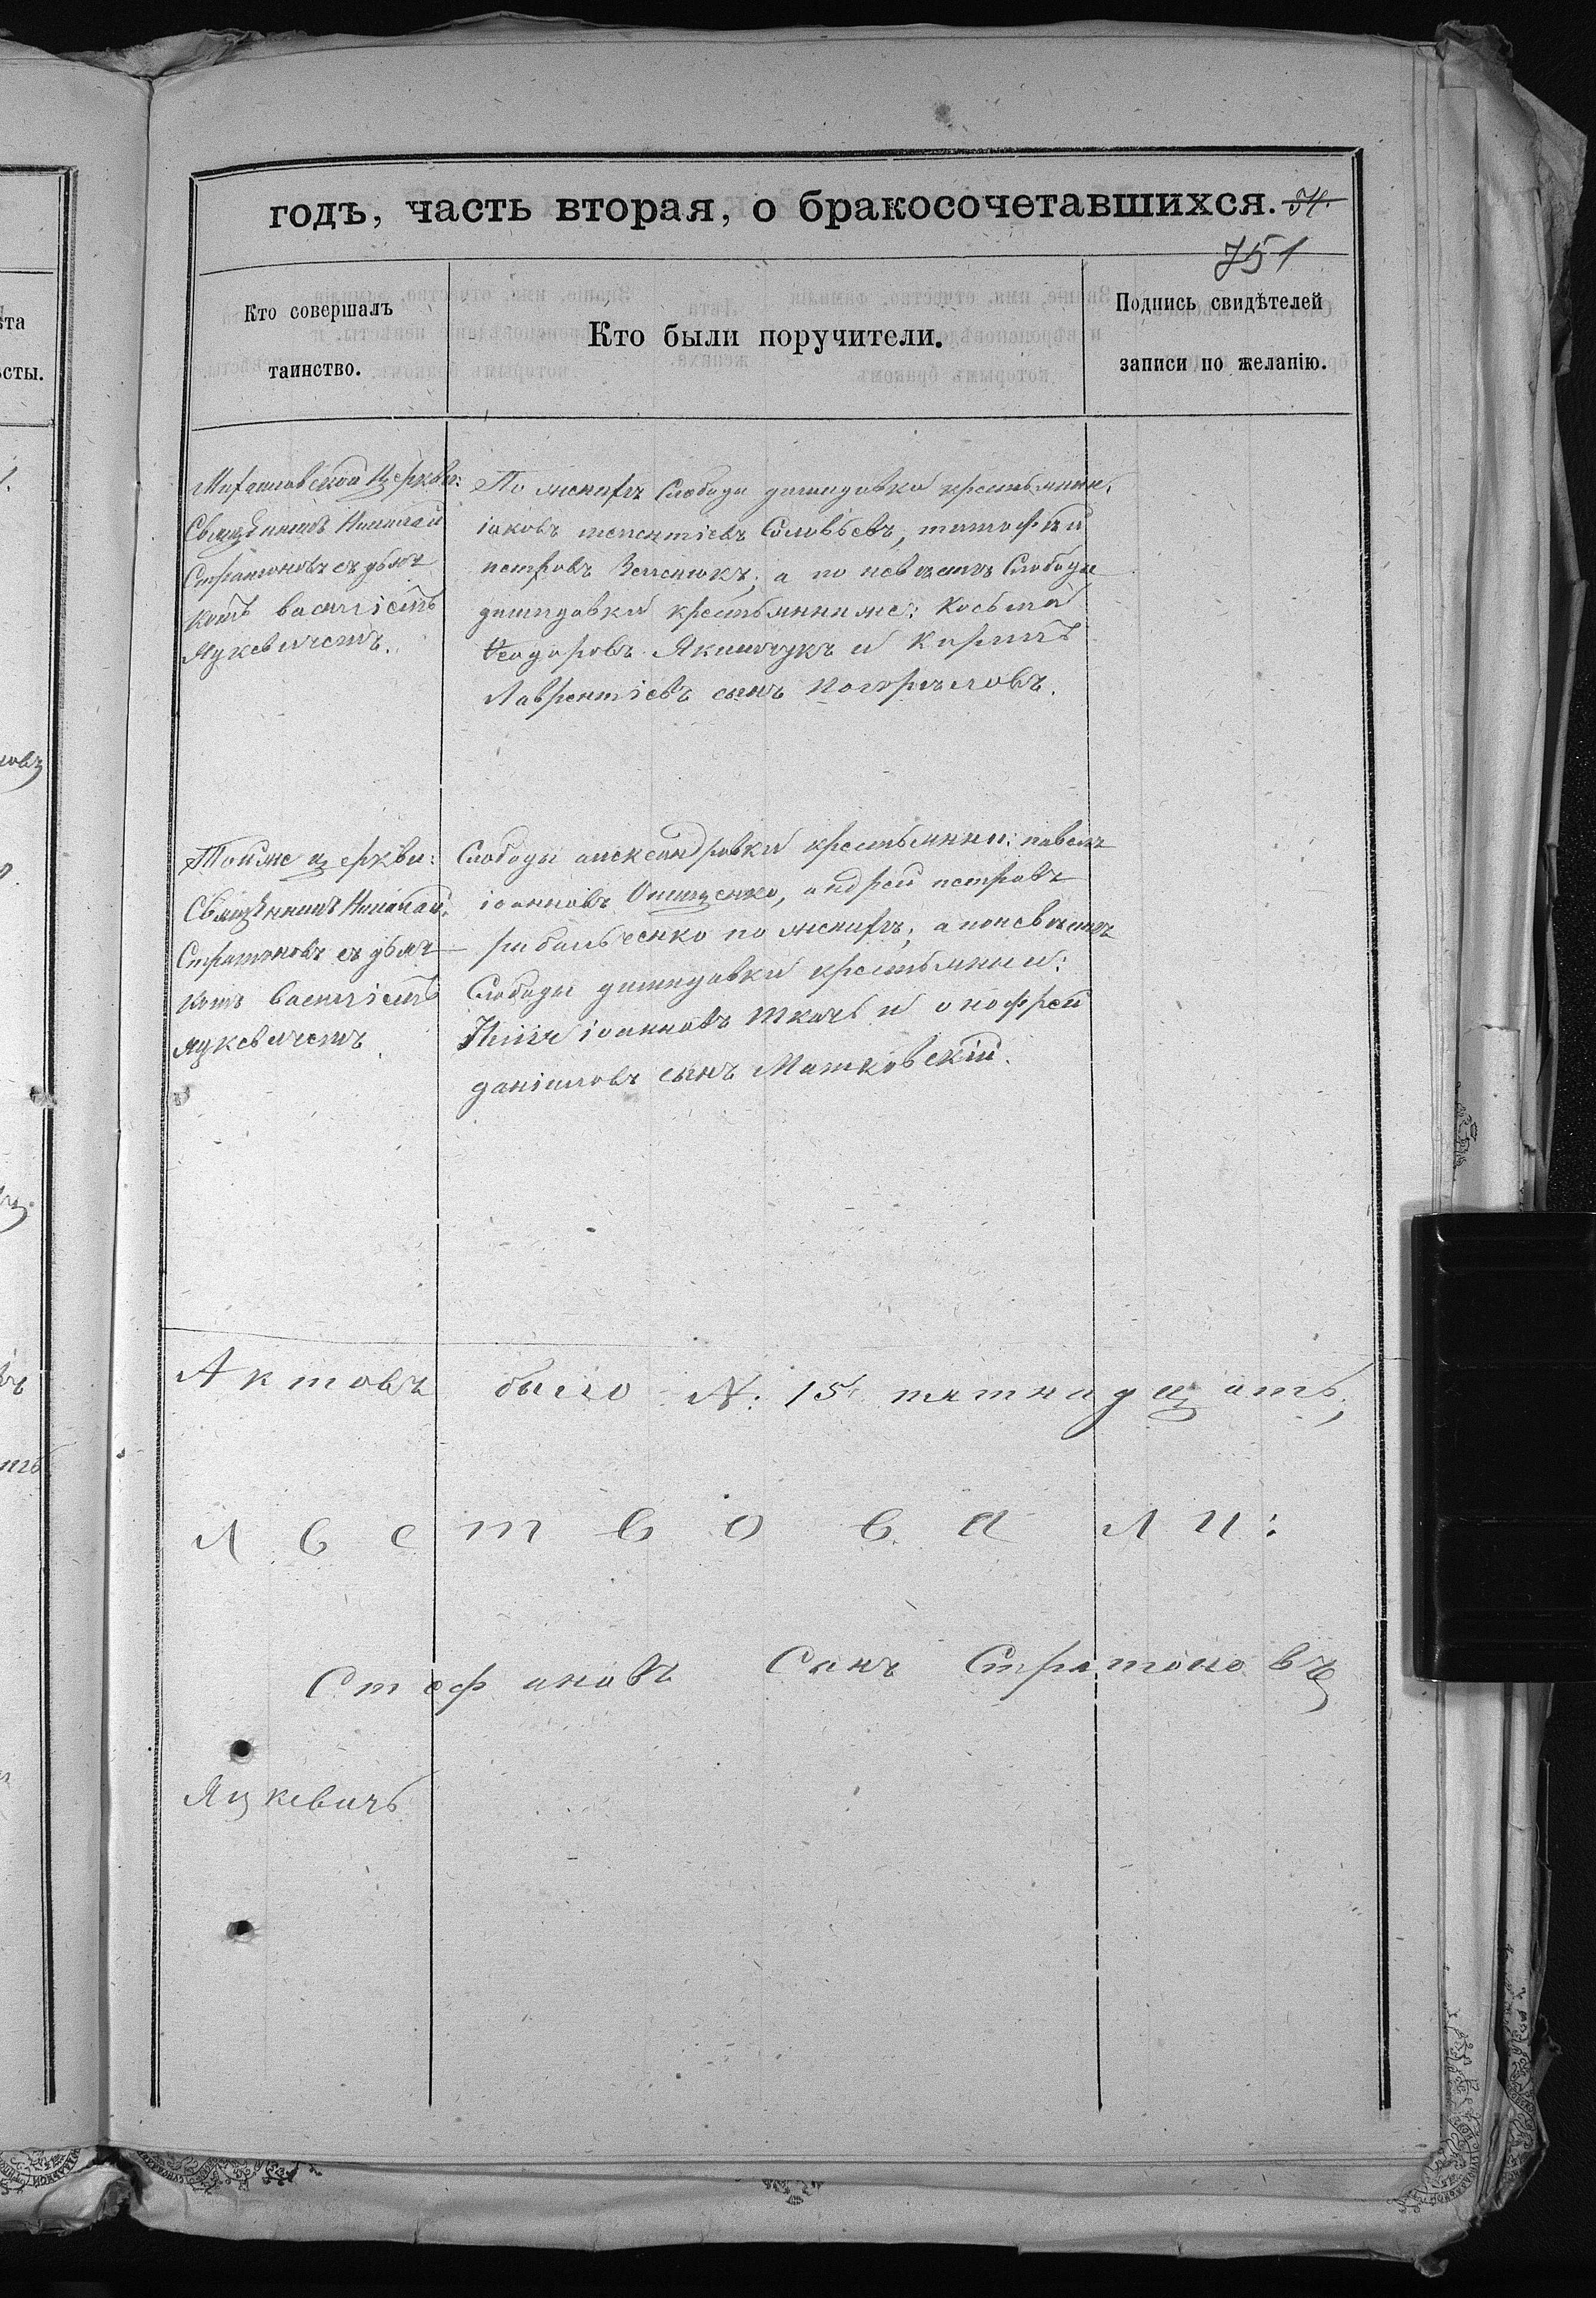 годъ, часть вторая, о бракосочетавшихся. 34.
751
Кто совершалъ
таинство.
Кто были поручители.
Подпись свидѣтелей
записи по желанію.
Михаиловской Церкви:
Священникъ Николай
Стратоновъ съ дьяч
комъ василіемъ
Яцкевичемъ.
По женихѣ Слободы демидовки крестьянин.
іаковъ терентіевъ Соловьевъ, тимофѣй
петровъ Зеленюкъ; а по невѣстѣ Слободы
демидовки крестьянинже: Косьма
Ѳеодоровъ Якимчукъ и Кирилъ
Лаврентіевъ сынъ Погорѣловъ.
Тойже церкви:
Священникъ Николай
Стратоновъ съ дьяч
комъ василіемъ
яцкевичемъ.
Слободы александровки крестьянин: павелъ
іоанновъ Онищенко, андрей петровъ
рибальченко по женихѣ; а поневѣстѣ
Слободы демидовки крестьянини:
іоанновъ Ткачъ и онофрей
даніиловъ сынъ Матковскій.
Актовъ было N: 15 пятнадцать;
л ь с т в о в а л и:
Стефановъ Сынъ Стратоновъ
Яцкевичъ